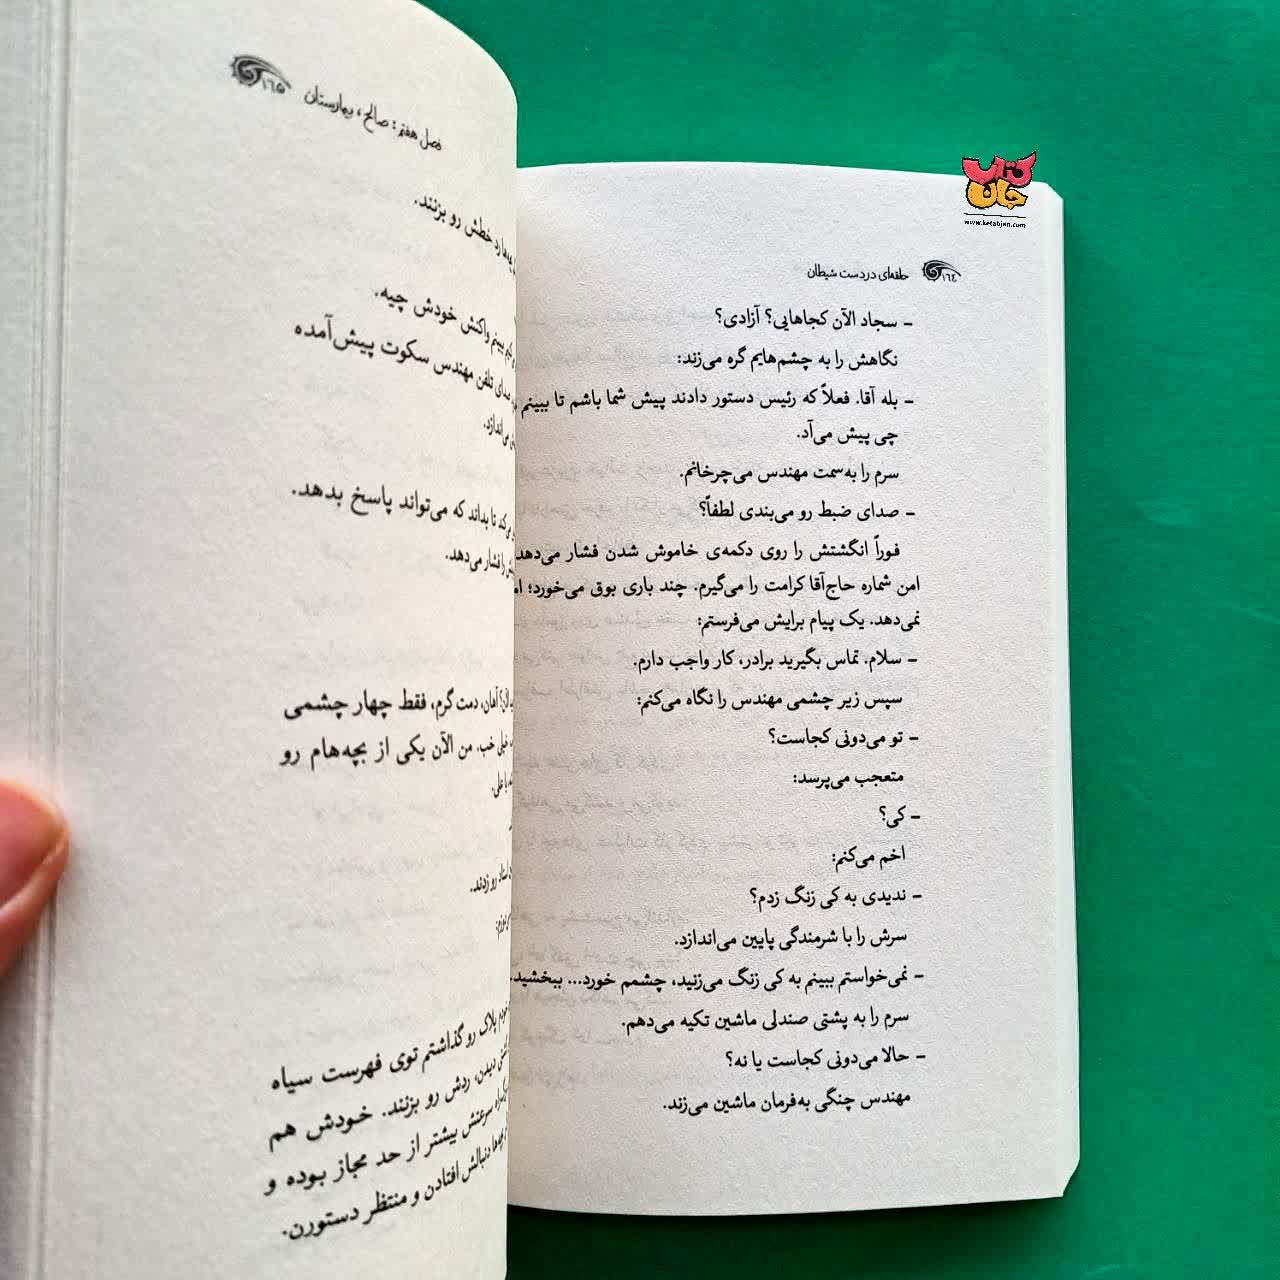 کتاب جان
www.ketabjan.com
۱۶٤ حلقه‌ای در دست شیطان
– سجاد الآن کجاهایی؟ آزادی؟
نگاهش را به چشم‌هایم گره می‌زند:
– بله آقا. فعلاً که رئیس دستور دادند پیش شما باشم تا ببینم
چی پیش می‌آد.
سرم را به‌سمت مهندس می‌چرخانم.
– صدای ضبط رو می‌بندی لطفاً؟
فوراً انگشتش را روی دکمه‌ی خاموش شدن فشار می‌دهد
امن شماره حاج‌آقا کرامت را می‌گیرم. چند باری بوق می‌خورد؛
نمی‌دهد. یک پیام برایش می‌فرستم:
– سلام. تماس بگیرید برادر، کار واجب دارم.
سپس زیر چشمی مهندس را نگاه می‌کنم:
– تو می‌دونی کجاست؟
متعجب می‌پرسد:
– کی؟
اخم می‌کنم:
– ندیدی به کی زنگ زدم؟
سرش را با شرمندگی پایین می‌اندازد.
– نمی‌خواستم ببینم به کی زنگ می‌زنید، چشمم خورد... ببخشید.
سرم را به پشتی صندلی ماشین تکیه می‌دهم.
– حالا می‌دونی کجاست یا نه؟
مهندس چنگی به‌فرمان ماشین می‌زند.
فصل هفتم: صالح، بیمارستان ۱۶۵
رد خطش رو بزنند.
ببینم واکنش خودش چیه.
صدای تلفن مهندس سکوت پیش‌آمده
می‌اندازد.
تا بداند که می‌تواند پاسخ بدهد.
را فشار می‌دهد.
آهان، دمت‌گرم، فقط چهار چشمی
خیلی خب. من الآن یکی از بچه‌هام رو
یا علی.
رو زدند.
پلاک رو گذاشتم توی فهرست سیاه
دیدن، ردش رو بزنند. خودش هم
سرعتش بیشتر از حد مجاز بوده و
دنبالش افتادن و منتظر دستورن.